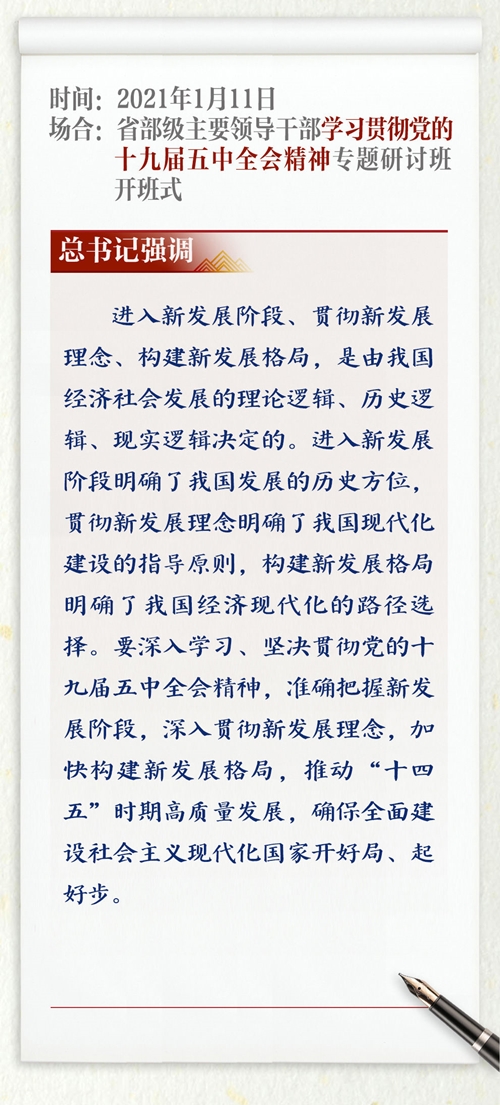 时间：2021年1月11日
场合：省部级主要领导干部学习贯彻党的
十九届五中全会精神专题研讨班
开班式
总书记强调
进入新发展阶段、贯彻新发展
理念、构建新发展格局，是由我国
经济社会发展的理论逻辑、历史逻
辑、现实逻辑决定的。进入新发展
阶段明确了我国发展的历史方位，
贯彻新发展理念明确了我国现代化
建设的指导原则，构建新发展格局
明确了我国经济现代化的路径选
择。要深入学习、坚决贯彻党的十
九届五中全会精神，准确把握新发
展阶段，深入贯彻新发展理念，加
快构建新发展格局，推动“十四
五”时期高质量发展，确保全面建
设社会主义现代化国家开好局、起
好步。